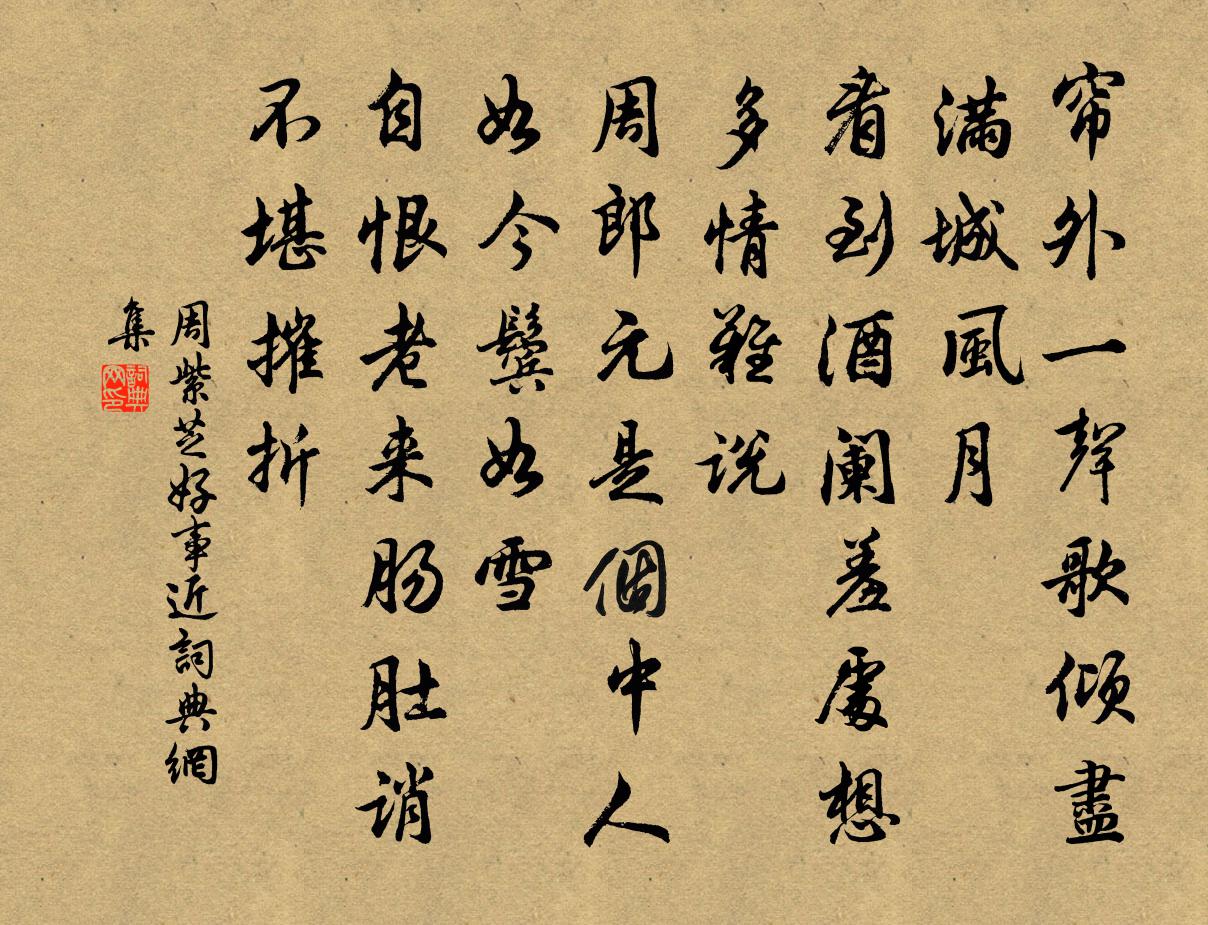 帘外一聲歌傾盡
滿城風月
看到酒阑羞處想
多情難説
周郎元是個中人
如今鬓如雪
自恨老来肠肚誚
不堪摧折
周紫芝好事近詞典網
集
詞典網印